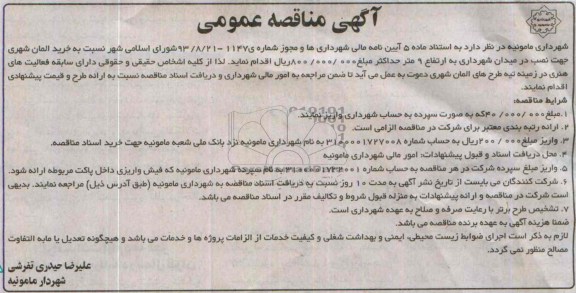 آگهی مناقصه عمومی
شهرداری مامونیه در نظر دارد به استناد ماده ۵ آیین نامه مالی شهرداری ها و مجوز شماره ی۱۱۴۷ -۹۳/۸/۲۱شورای اسلامی شهر نسبت به خرید المان شهری
جهت نصب در میدان شهرداری به ارتفاع ۹ متر حداکثر مبلغ۸۰۰/۰۰۰/۰۰۰ریال اقدام نماید. لذا از کلیه اشخاص حقیقی و حقوقی دارای سابقه فعالیت های
هنری در زمینه تیه طرح های المان شهری دعوت به عمل می آید تا ضمن مراجعه به امور مالی شهرداری و دریافت اسناد مناقصه نسبت به ارائه طرح و قیمت پیشنهادی
اقدام نمایند.
شرایط مناقصه:
۱.مبلغ۴۰/۰۰۰/۰۰۰که به صورت سپرده به حساب شهرداری واریز نمایند.
۲. ارائه رتبه بندی معتبر برای شرکت در مناقصه الزامی است.
۳. واریز مبلغ۲۰۰/۰۰۰ریال به حساب شماره ۳۱۰۰۰۰۱۷۲۷۰۰۸ به نام شهرداری مامونیه نزد بانک ملی شعبه مامونیه جهت خرید اسناد مناقصه.
۴. محل دریافت اسناد و قبول پیشنهادات: امور مالی شهرداری مامونیه
۵. واریز مبلغ سپرده شرکت در هر مناقصه به حساب شماره به نام سپرده شهرداری مامونیه که فیش واریزی داخل پاکت مربوطه ارائه شود.
۶. شرکت کنندگان می بایست از تاریخ نشر آگهی به مدت ۱۰ روز نسبت به دریافت اسناد مناقصه به شهرداری مامونیه (طبق آدرس ذیل) مراجعه نمایند. بدیهی
است شرکت در مناقصه و ارائه پیشنهادات به منزله قبول شروط و تکالیف مقرر در اسناد مناقصه می باشد.
۷. تشخیص طرح برتر با رعایت صرفه و صلاح به عهده شهرداری است.
ضمنا هزینه آگهی به عهده برنده مناقصه می باشد.
لازم به ذکر است اجرای ضوابط زیست محیطی، ایمنی و بهداشت شغلی و کیفیت خدمات از الزامات پروژه ها و خدمات می باشد و هیچگونه تعدیل یا مابه التفاوت
مصالح منظور نمی گردد.
علیرضا حیدری تفرشی
شهردار مامونیه